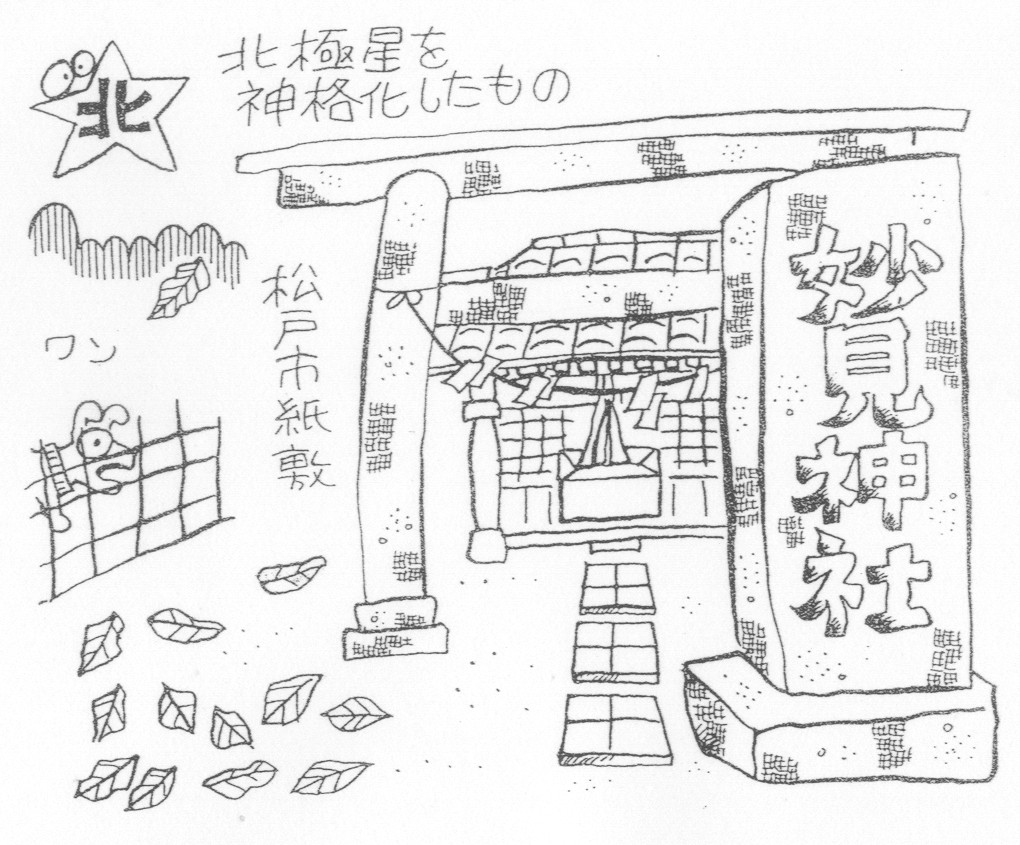 北極星を
神格化したもの
北
松戸市紙敷
ワン
妙見神社